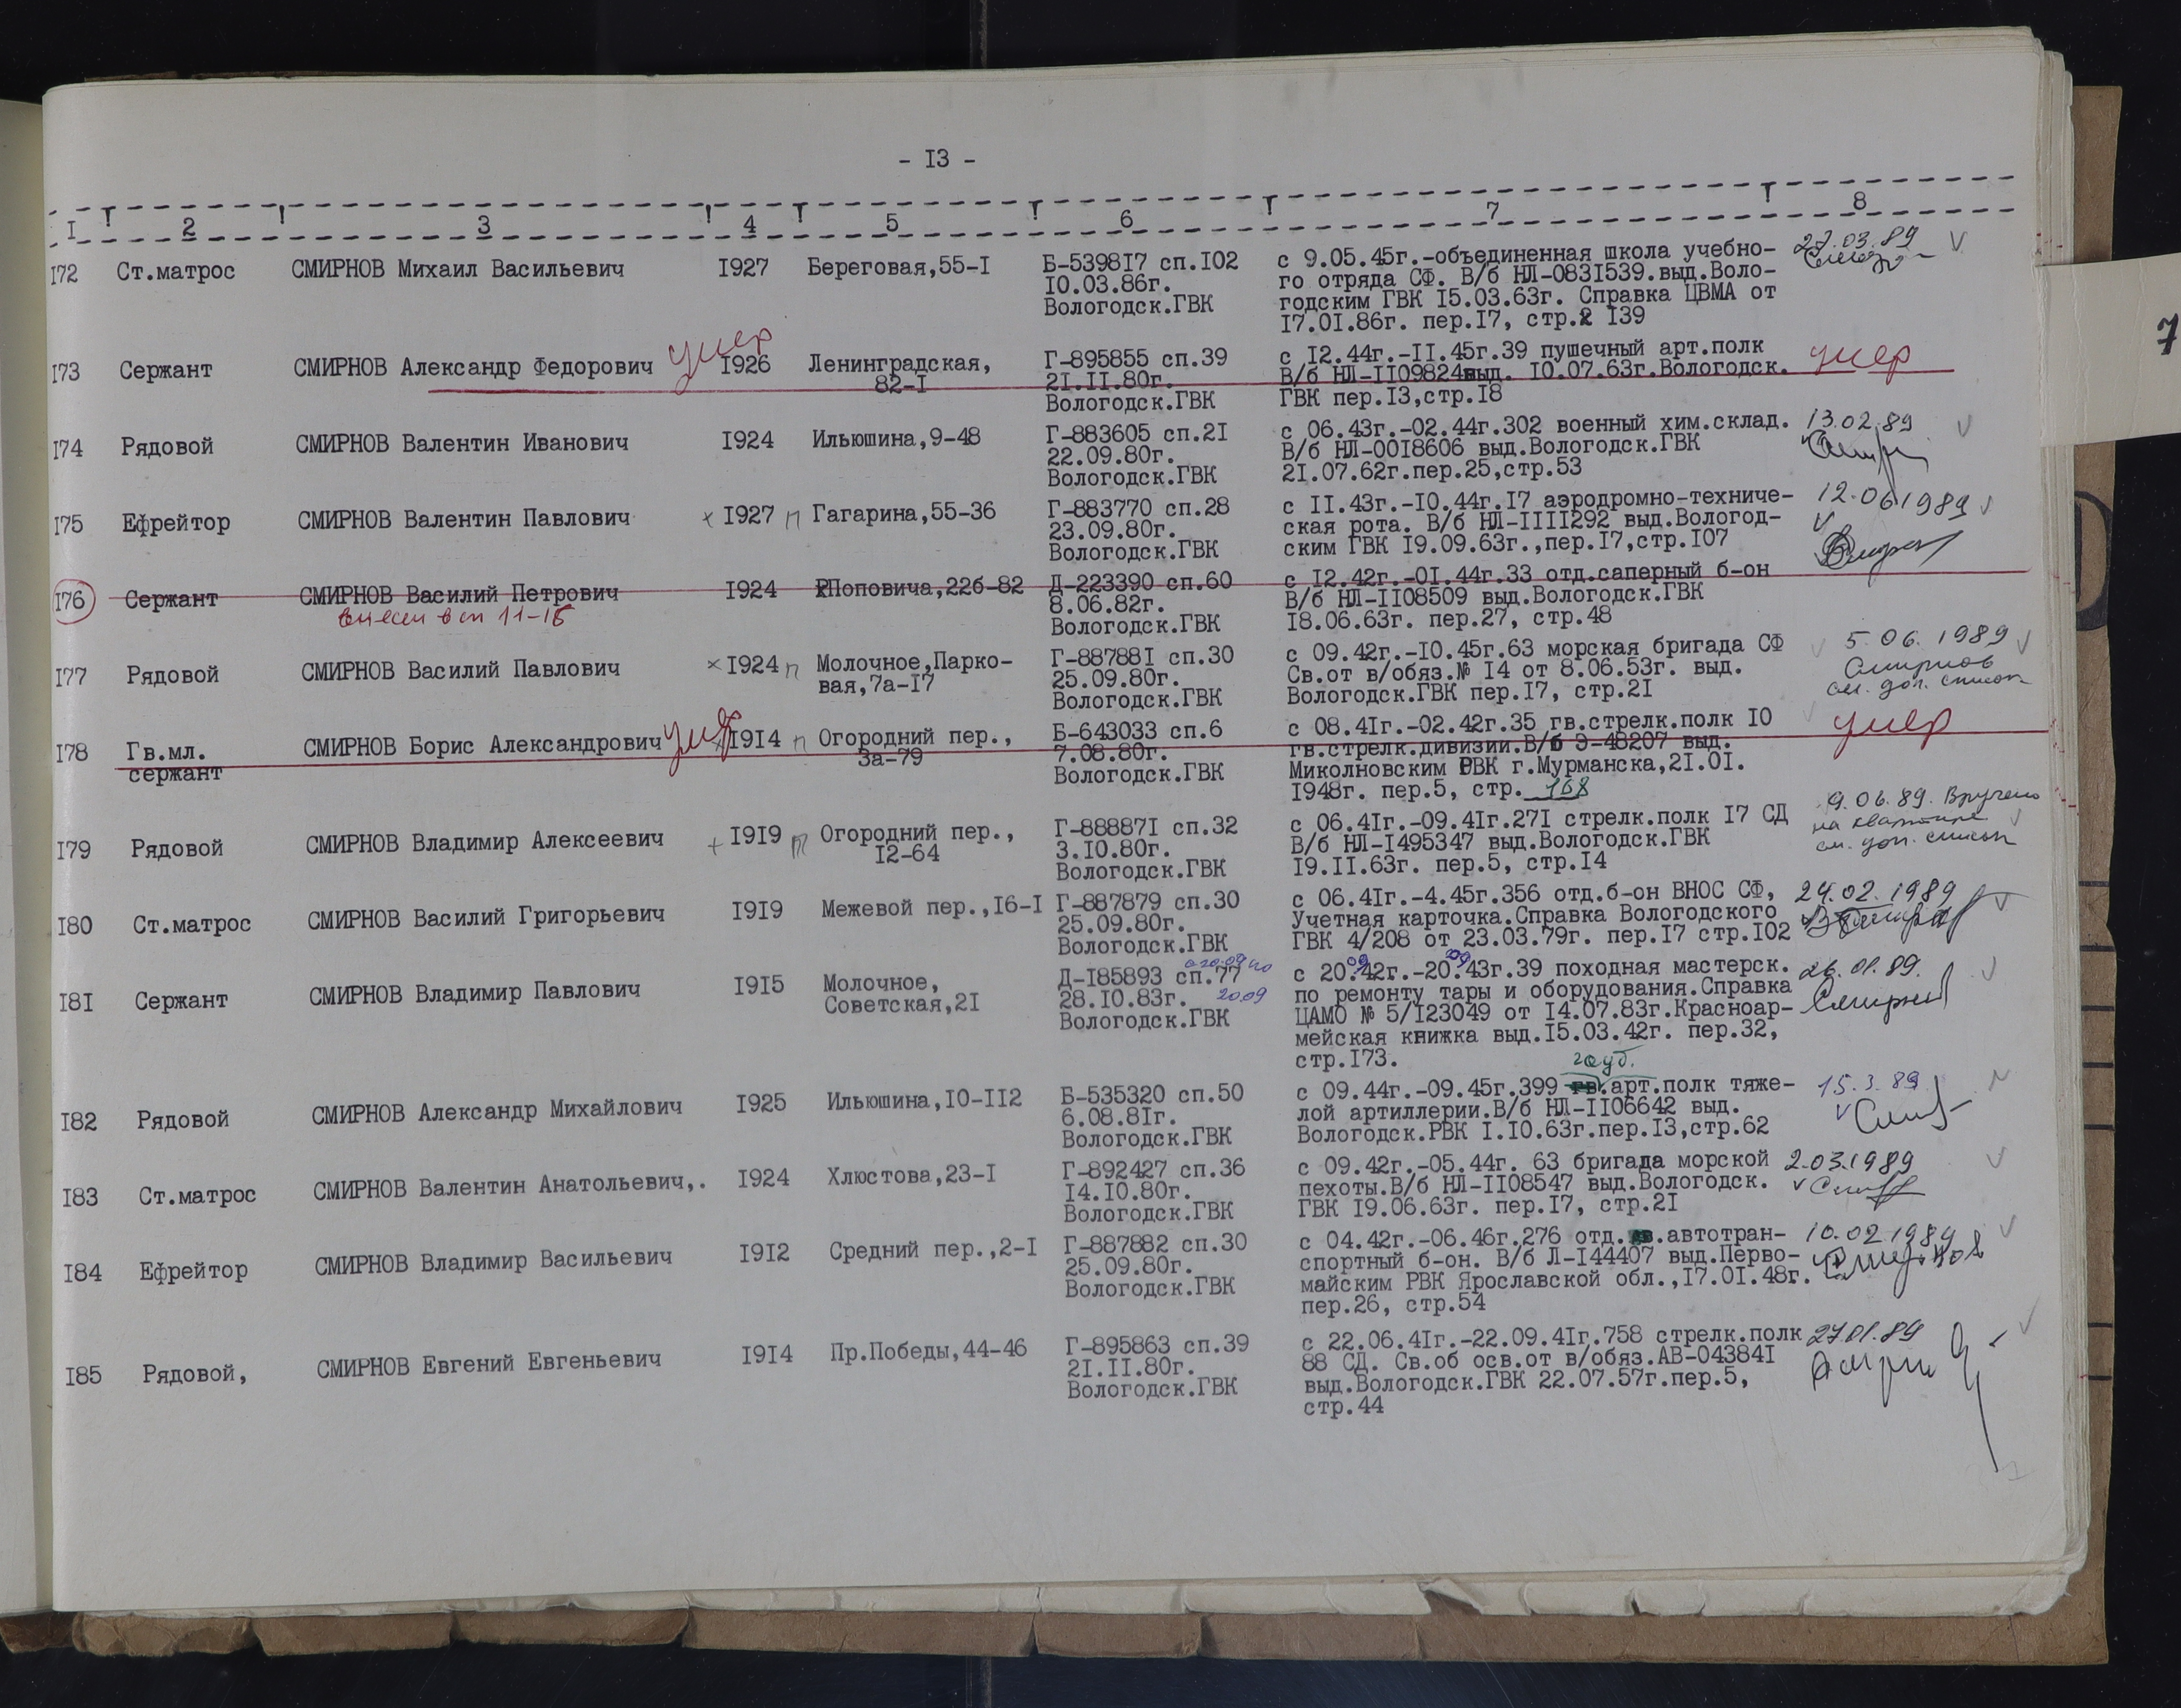 - I3 -
I 2 3 4 5 6 7 8
I72 Ст.матрос СМИРНОВ Михаил Васильевич I927 Береговая,55-I Б-5398I7 сп.I02 с 9.05.45г.-объединенная школа учебно- 27.03.89
I0.03.86г. го отряда СФ. В/б НЛ-083I539.выд.Воло-
Вологодск.ГВК годским ГВК I5.03.63г. Справка ЦВМА от
I7.0I.86г. пер.I7, стр. I39
умер
I73 Сержант СМИРНОВ Александр Федорович I926 Ленинградская, Г-895855 сп.39 с I2.44г.-II.45г.39 пушечный арт.полк умер
82-I 2I.II.80г. В/б НЛ-II09824выд. I0.07.63г.Вологодск.
Вологодск.ГВК ГВК пер.I3,стр.I8
I74 Рядовой СМИРНОВ Валентин Иванович I924 Ильюшина,9-48 Г-883605 сп.2I с 06.43г.-02.44г.302 военный хим.склад. 13.02.89
22.09.80г. В/б НЛ-00I8606 выд.Вологодск.ГВК
Вологодск.ГВК 2I.07.62г.пер.25,стр.53
I75 Ефрейтор СМИРНОВ Валентин Павлович × I927 п Гагарина,55-36 Г-883770 сп.28 с II.43г.-I0.44г.I7 аэродромно-техниче- 12.06.1989
23.09.80г. ская рота. В/б НЛ-IIII292 выд.Вологод-
Вологодск.ГВК ским ГВК I9.09.63г.,пер.I7,стр.I07
I76 Сержант СМИРНОВ Василий Петрович I924 Поповича,22б-82 Д-223390 сп.60 с I2.42г.-0I.44г.33 отд.саперный б-он
внесен в сп 11-15 8.06.82г. В/б НЛ-II08509 выд.Вологодск.ГВК
Вологодск.ГВК I8.06.63г. пер.27, стр.48
I77 Рядовой СМИРНОВ Василий Павлович × I924 п Молочное,Парко- Г-88788I сп.30 с 09.42г.-I0.45г.63 морская бригада СФ 5.06.1989
вая,7а-I7 25.09.80г. Св.от в/обяз.№ I4 от 8.06.53г. выд. Смирнов
Вологодск.ГВК Вологодск.ГВК пер.I7, стр.2I см. доп. список
умер
I78 Гв.мл. СМИРНОВ Борис Александрович × I9I4 п Огородний пер., Б-643033 сп.6 с 08.4Iг.-02.42г.35 гв.стрелк.полк I0 умер
сержант 3а-79 7.08.80г. гв.стрелк.дивизии.В/б Э-48207 выд.
Вологодск.ГВК Миколновским РВК г.Мурманска,2I.0I.
I948г. пер.5, стр. 168
I79 Рядовой СМИРНОВ Владимир Алексеевич + I9I9 п Огородний пер., Г-88887I сп.32 с 06.4Iг.-09.4Iг.27I стрелк.полк I7 СД 9.06.89. Вручено
I2-64 3.I0.80г. В/б НЛ-I495347 выд.Вологодск.ГВК на квартире
Вологодск.ГВК I9.II.63г. пер.5, стр.I4 см. доп. список
I80 Ст.матрос СМИРНОВ Василий Григорьевич I9I9 Межевой пер.,I6-I Г-887879 сп.30 с 06.4Iг.-4.45г.356 отд.б-он ВНОС СФ, 24.02.1989
25.09.80г. Учетная карточка.Справка Вологодского
Вологодск.ГВК ГВК 4/208 от 23.03.79г. пер.I7 стр.I02
с 20.09 по 09 09
I8I Сержант СМИРНОВ Владимир Павлович I9I5 Молочное, Д-I85893 сп.77 с 20.42г.-20.43г.39 походная мастерск. 26.01.89.
Советская,2I 28.I0.83г. 20.09 по ремонту тары и оборудования.Справка
Вологодск.ГВК ЦАМО № 5/I23049 от I4.07.83г.Красноар- Смирнов
мейская книжка выд.I5.03.42г. пер.32,
стр.I73.
гауб.
I82 Рядовой СМИРНОВ Александр Михайлович I925 Ильюшина,I0-II2 Б-535320 сп.50 с 09.44г.-09.45г.399 гв.арт.полк тяже- 15.3.89
6.08.8Iг. лой артиллерии.В/б НЛ-II06642 выд.
Вологодск.ГВК Вологодск.РВК I.I0.63г.пер.I3,стр.62
I83 Ст.матрос СМИРНОВ Валентин Анатольевич,. I924 Хлюстова,23-I Г-892427 сп.36 с 09.42г.-05.44г. 63 бригада морской 2.03.1989
I4.I0.80г. пехоты.В/б НЛ-II08547 выд.Вологодск.
Вологодск.ГВК ГВК I9.06.63г. пер.I7, стр.2I
I84 Ефрейтор СМИРНОВ Владимир Васильевич I9I2 Средний пер.,2-I Г-887882 сп.30 с 04.42г.-06.46г.276 отд. .автотран- 10.02.1989
25.09.80г. спортный б-он. В/б Л-I44407 выд.Перво- Смирнов
Вологодск.ГВК майским РВК Ярославской обл.,I7.0I.48г.
пер.26, стр.54
I85 Рядовой, СМИРНОВ Евгений Евгеньевич I9I4 Пр.Победы,44-46 Г-895863 сп.39 с 22.06.4Iг.-22.09.4Iг.758 стрелк.полк 27.01.89
2I.II.80г. 88 СД. Св.об осв.от в/обяз.АВ-04384I
Вологодск.ГВК выд.Вологодск.ГВК 22.07.57г.пер.5,
стр.44
7